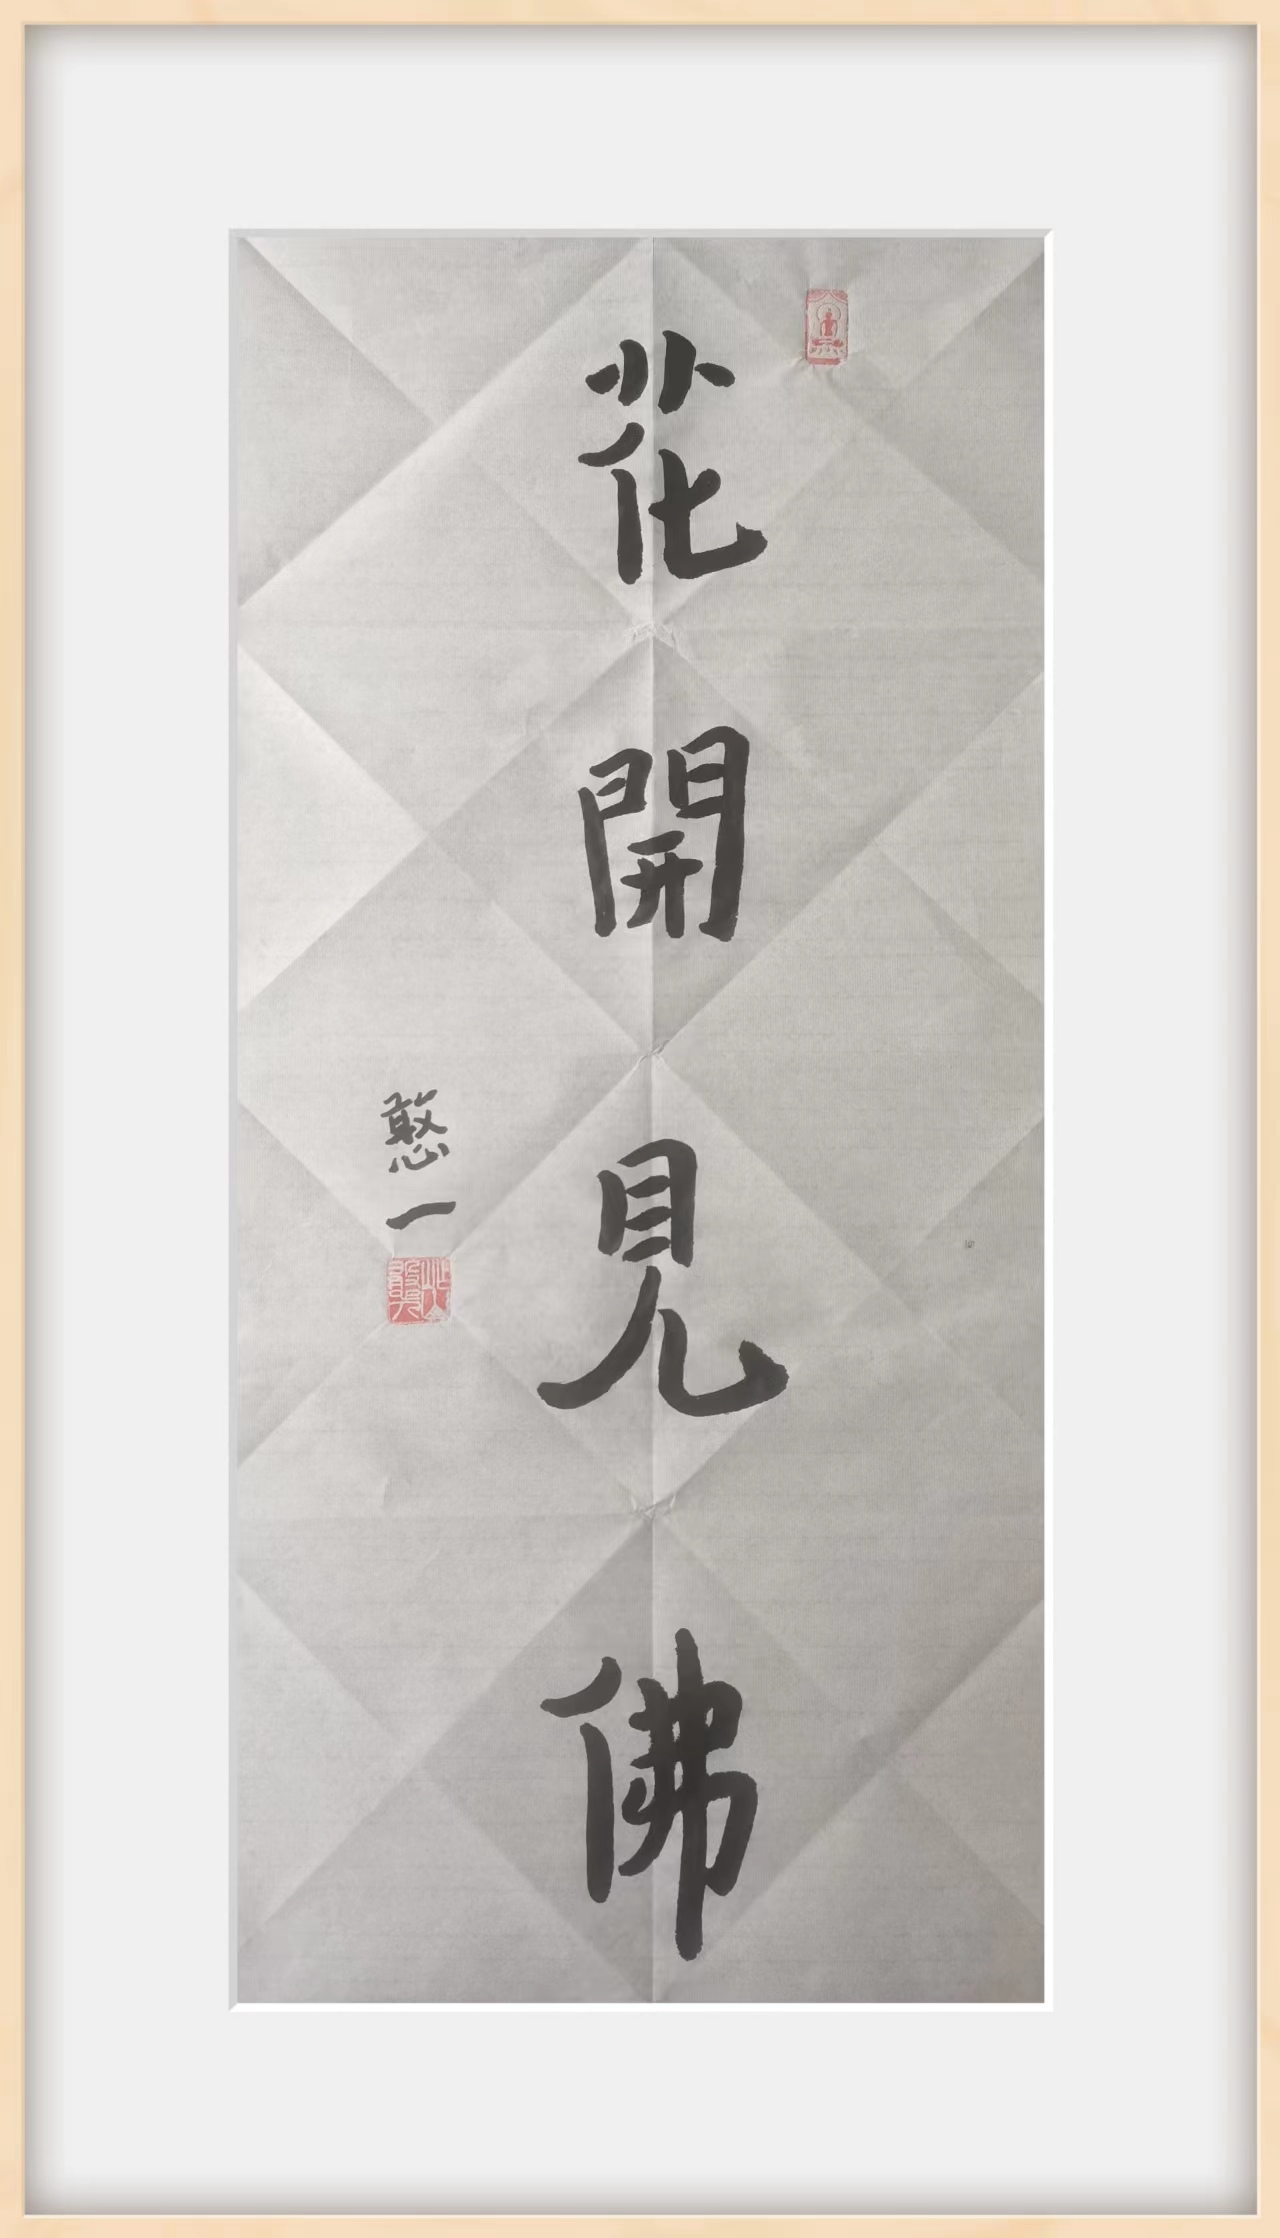 花開見佛
憨一